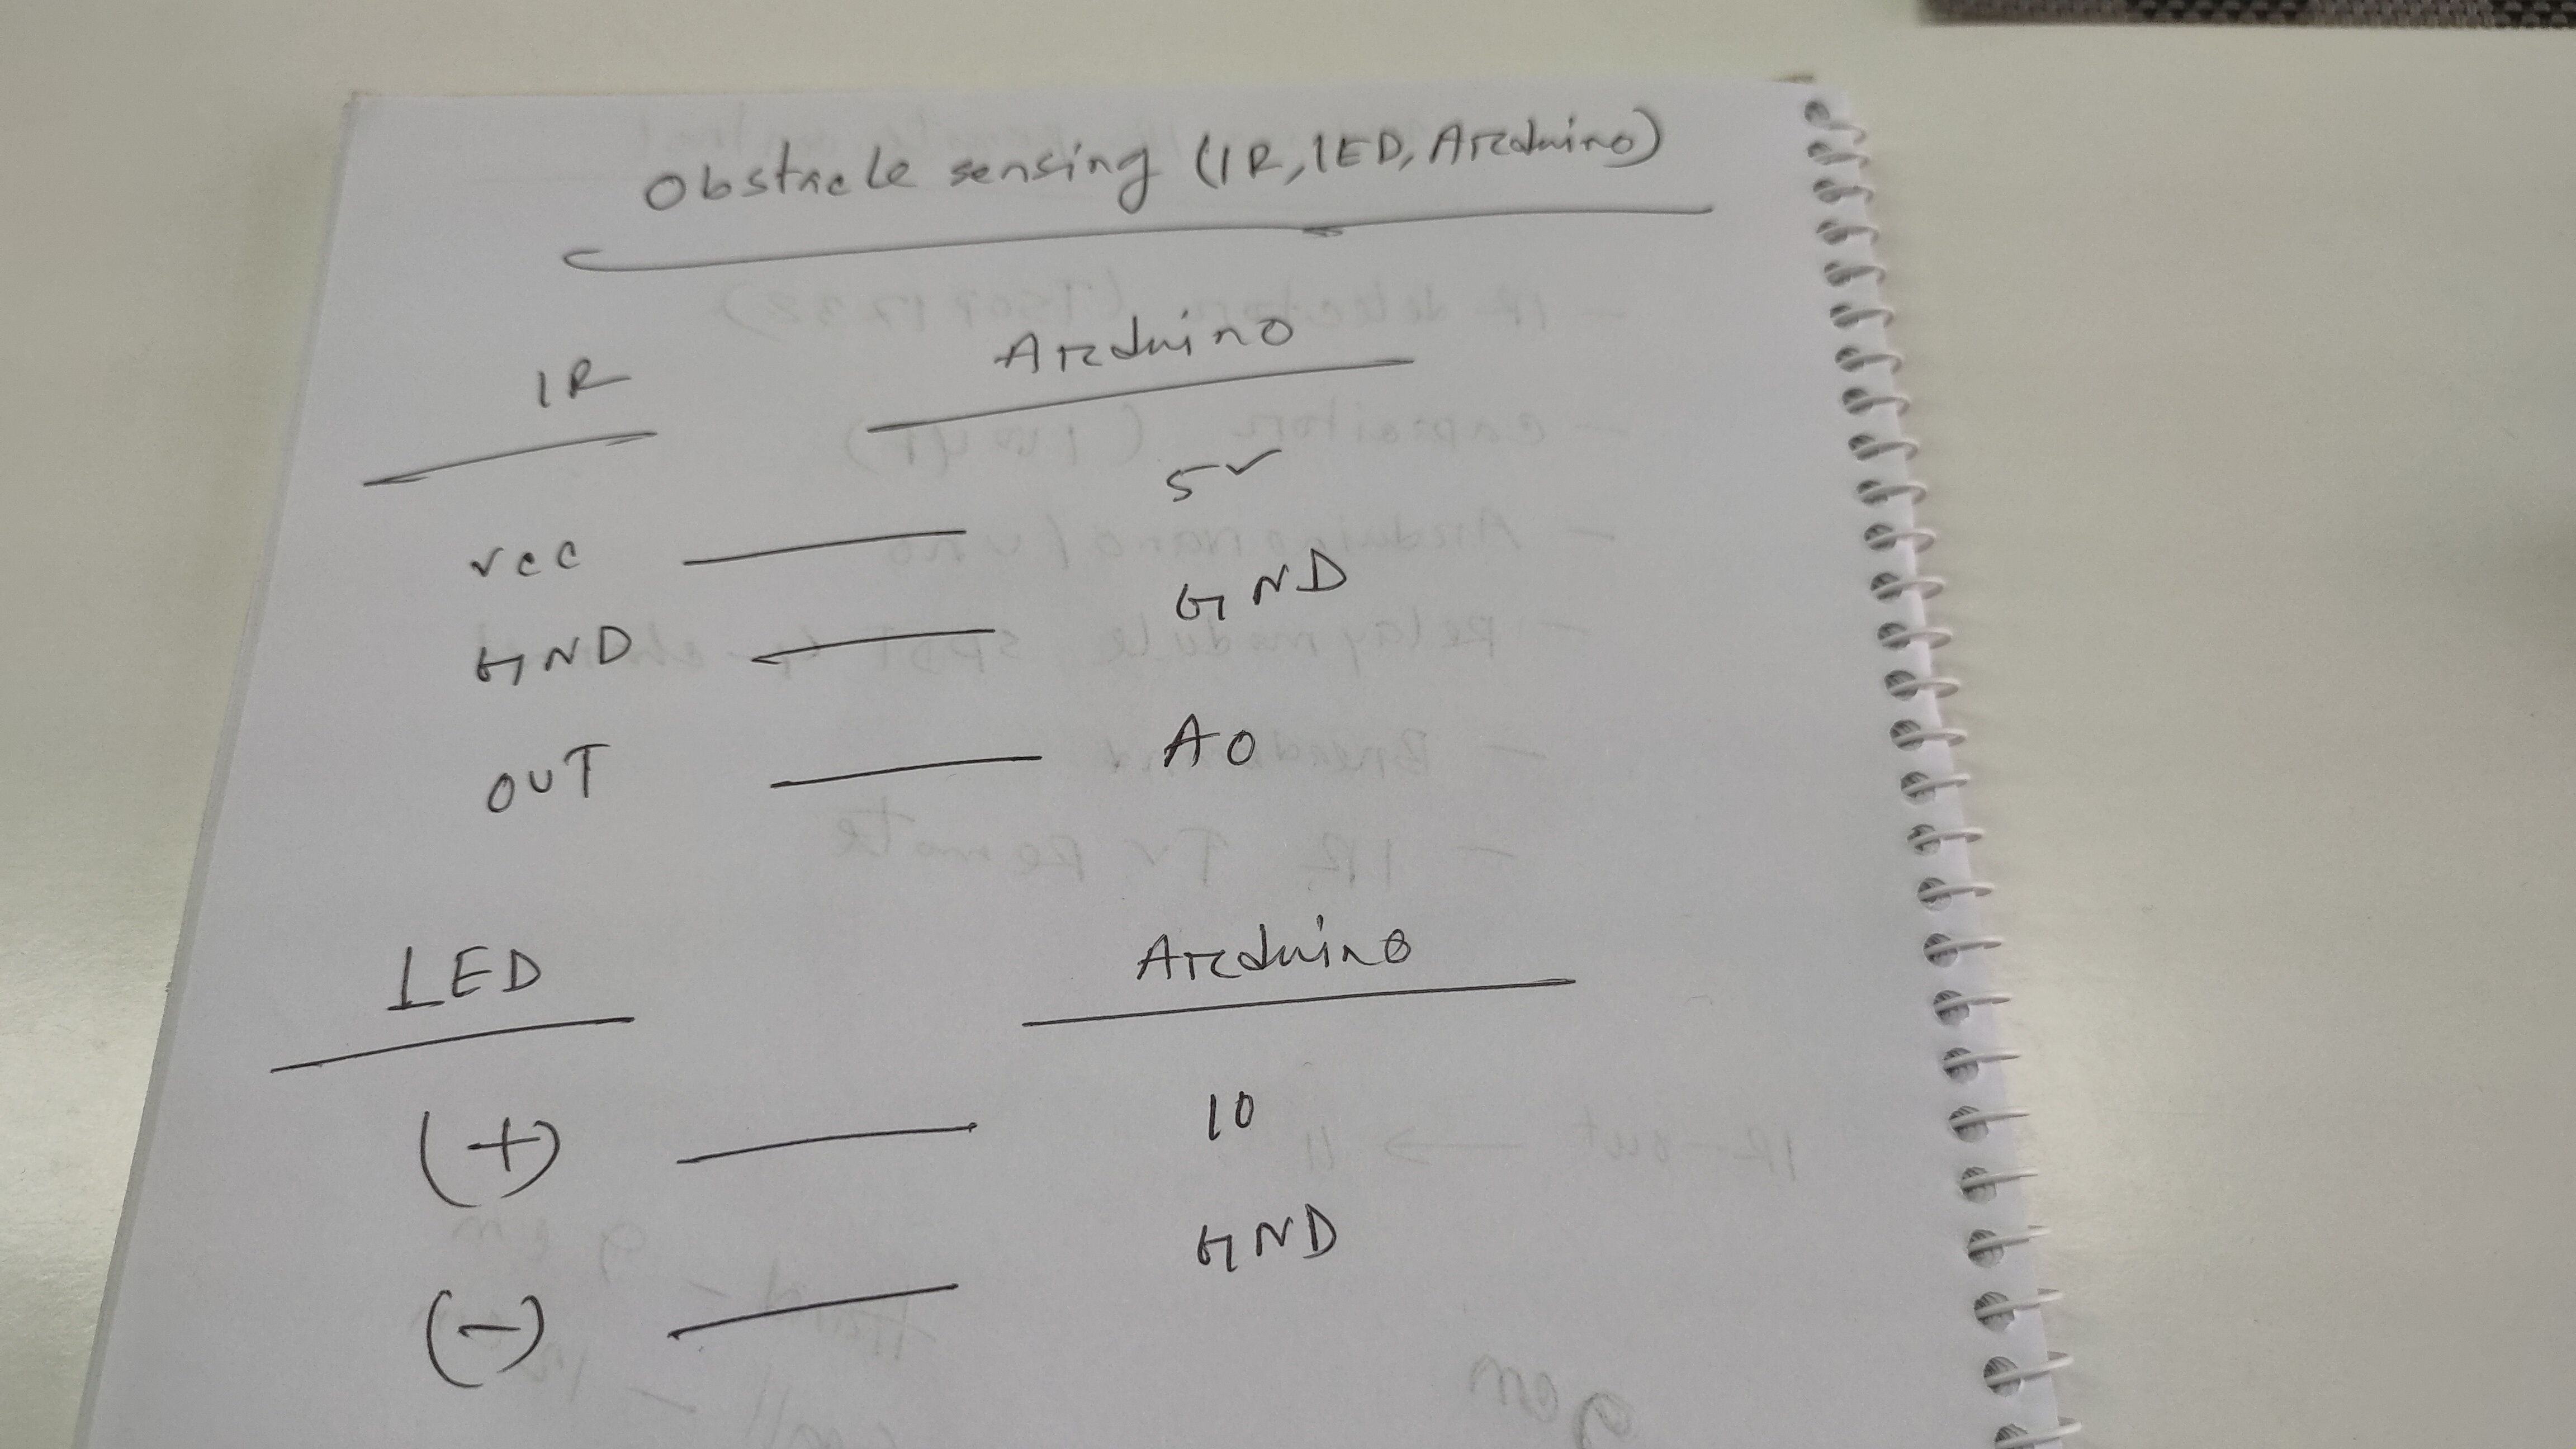 Obstacle sensing (IR, LED, Arduino)
IR Arduino
VCC — 5V
GND — GND
OUT — A0
LED Arduino
(+) — 10
(-) — GND